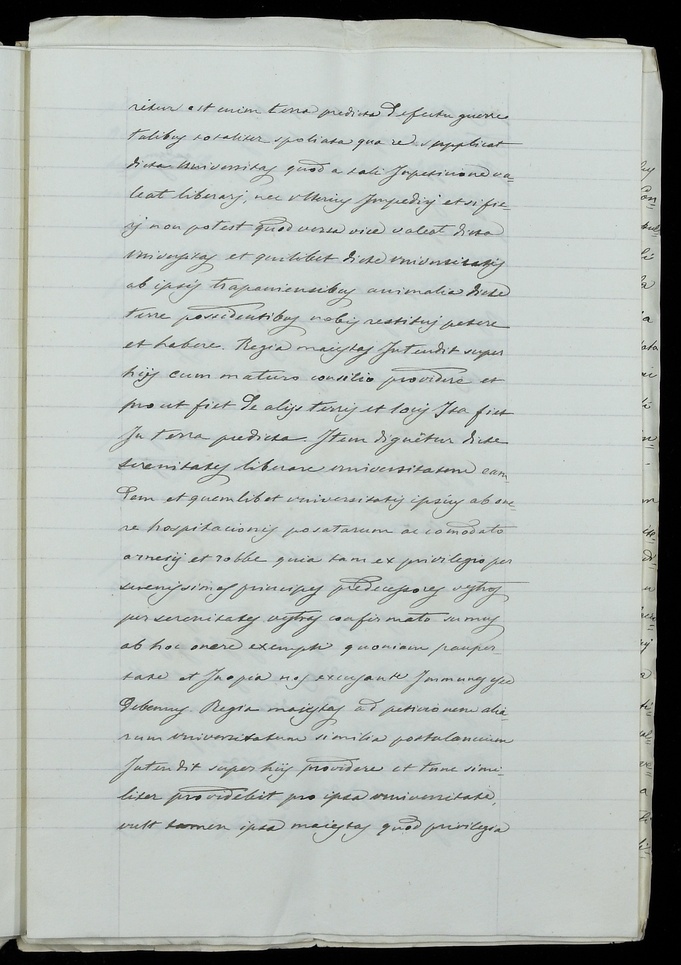 retur est enim terra predicta defectu guerre
talibus totaliter spoliata qua re supplicat
dicta Universitas quod a tali Impeticione va=
leat liberarj, nec ulterius Impedirj et si fie=
rj non potest quod versa vice valeat dicta
universitas et quilibet dicte universitatis
ab ipsis trapaniensibus animalia dicte
terre possidentibus nobis restituj petere
et habere. Regia maiestas Intendit super
hijs cum maturo consilio providere et
prout fiet de alijs terris et locis Ita fiet
In terra predicta. Item dignetur dicte
serenitatis liberare universitatem eam=
dem et quemlibet universitatis ipsius ab one=
re hospitacionis posatarum accomodato
arnesij et robbe quia tam ex privilegio per
serenissimos principes predecessores vestros
per serenitates vestras confirmato sumus
ab hoc onere exempti quoniam pauper
tate et Inopia nos excusante Immunes esse
debemus. Regia maiestas ad peticionem alia=
rum universitatum similia postulancium
Intendit super hijs providere et tunc simi=
liter providebit pro ipsa universitate,
vult tamen ipsa maiestas quod privilegia